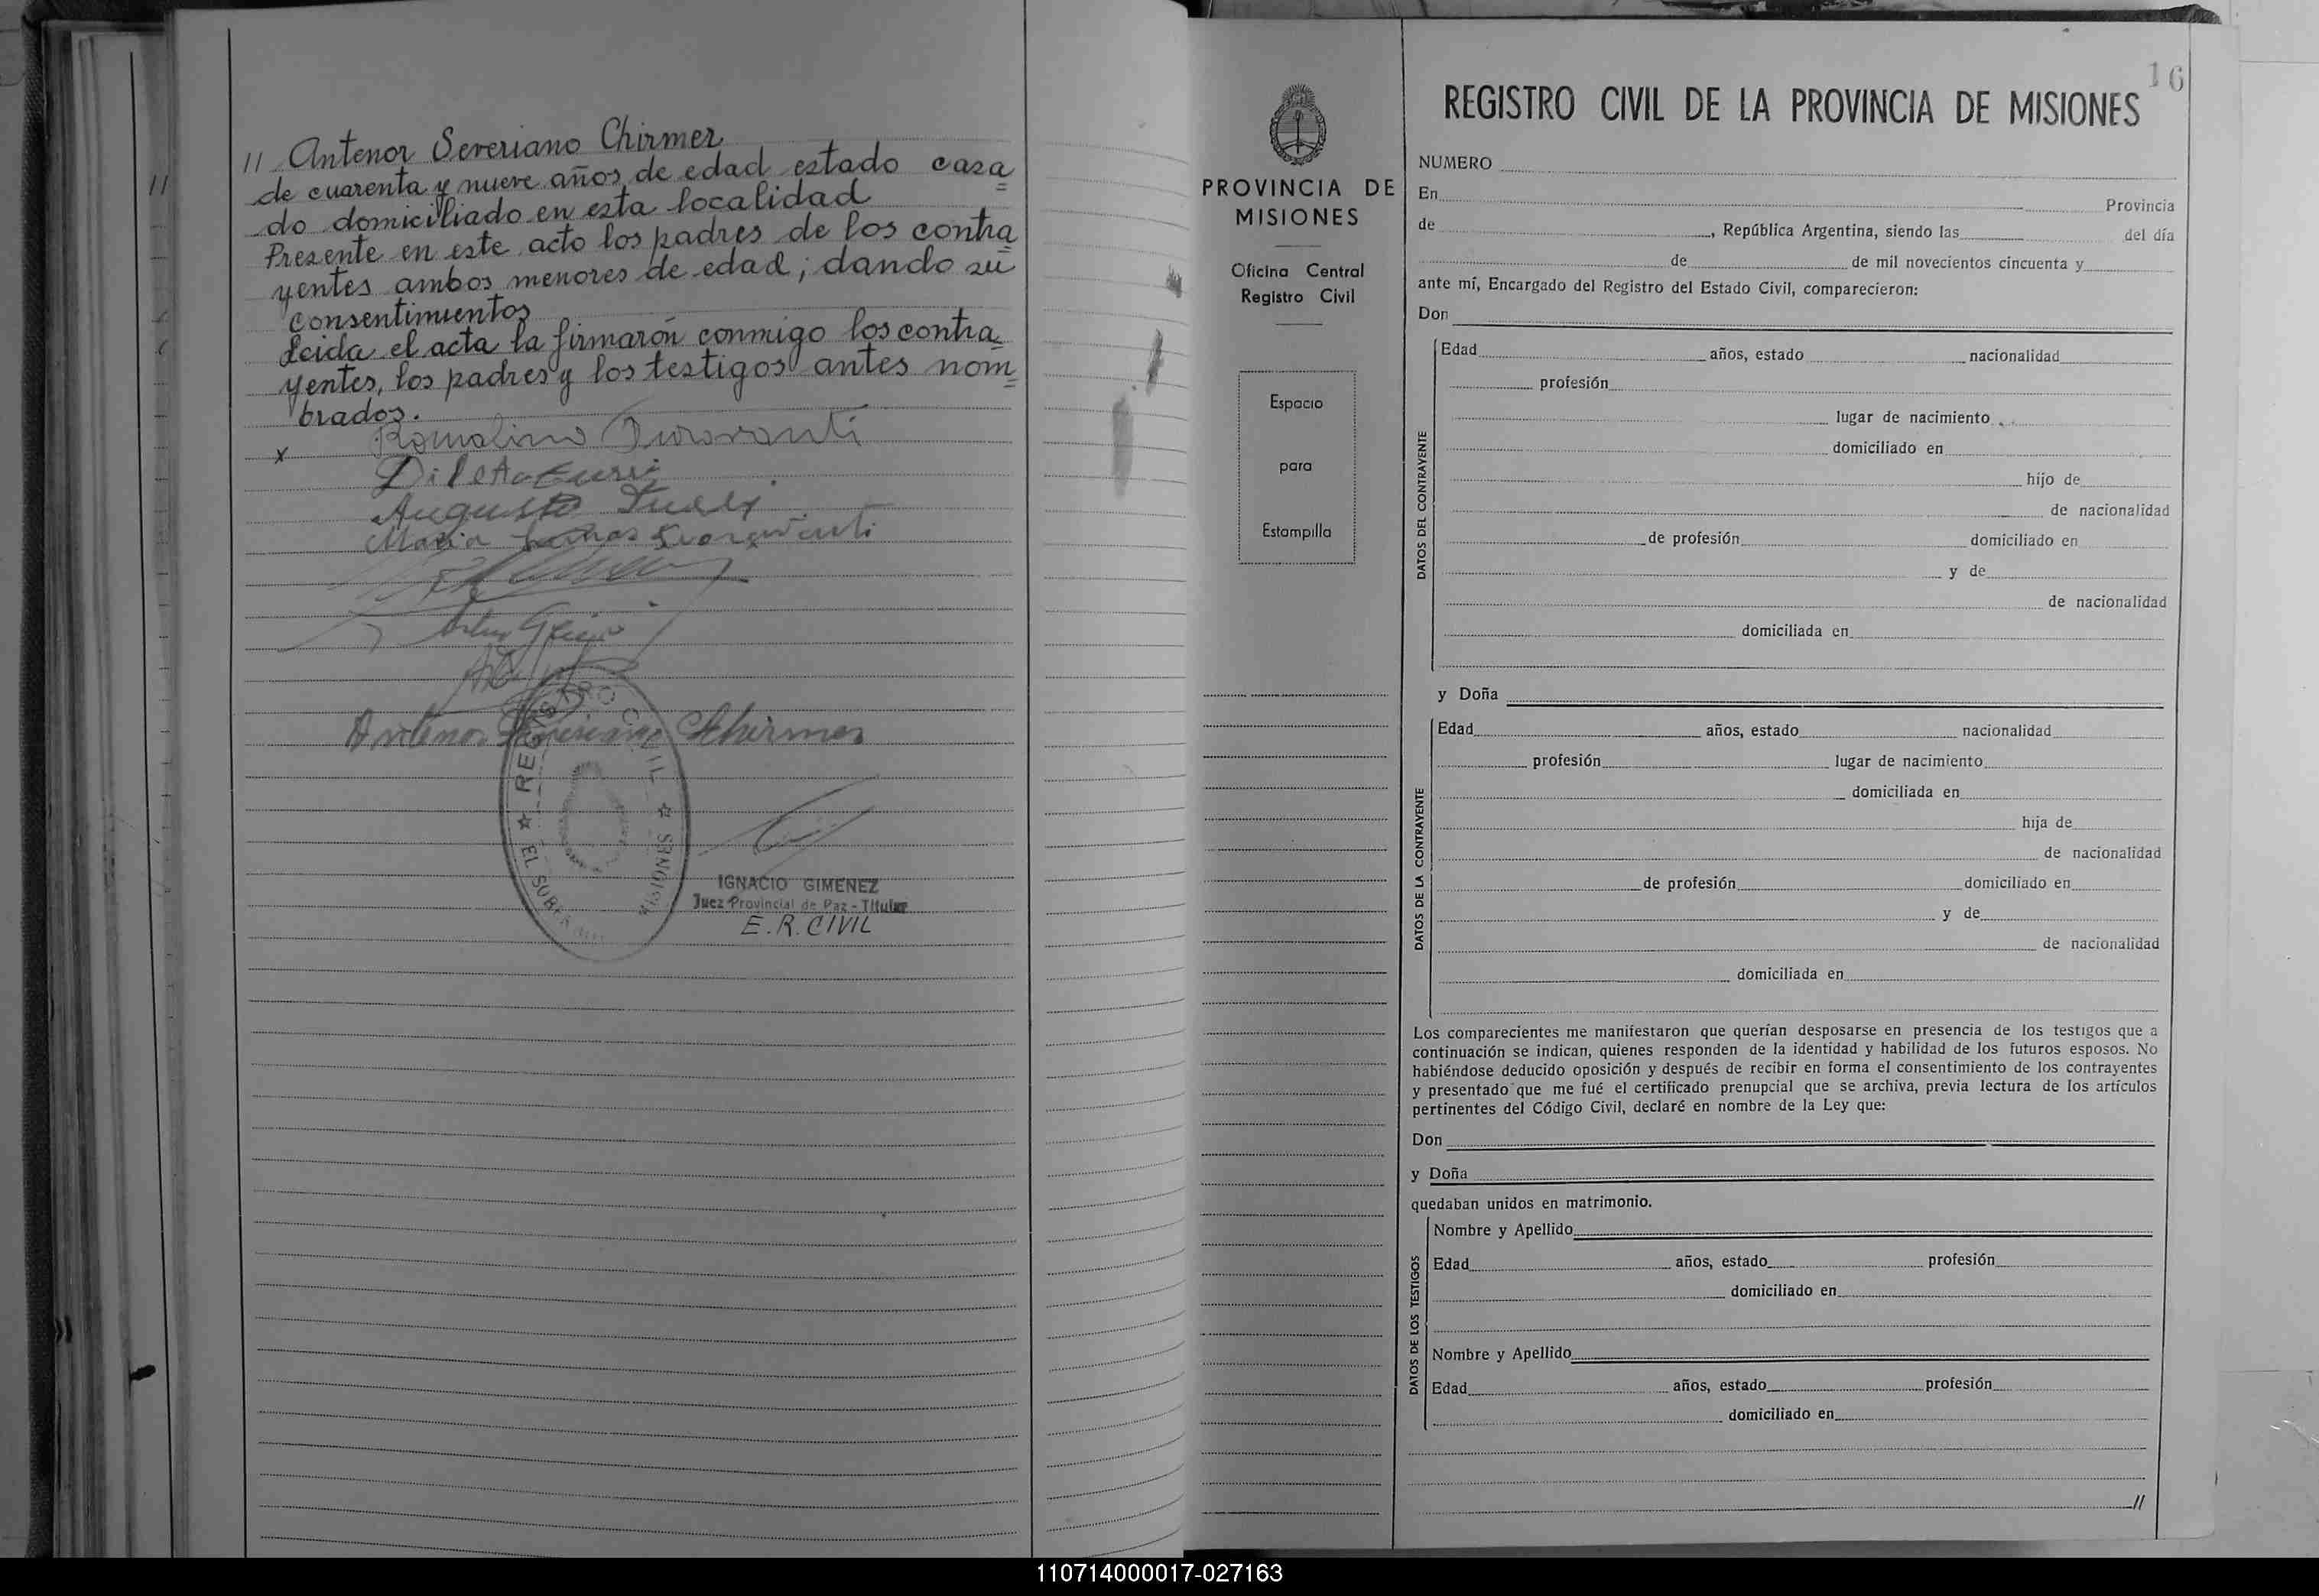 // Antenor Severiano Chirmer
de cuarenta y nueve años de edad estado casa
do domiciliado en esta localidad
Presente en este acto los padres de los contra
yentes ambos menores de edad; dando su
consentimientos
Leida el acta la firmarón conmigo los contra
yentes, los padres y los testigos antes nom
brados.
x Romalino
Augusto
Maria
Antenor Severiano Chirmer
REGISTRO CIVIL
EL SOBER
MISIONES
IGNACIO GIMENEZ
Juez Provincial de Paz - Titular
E. R. CIVIL
16
PROVINCIA DE
MISIONES
Oficina Central
Registro Civil
Espacio
para
Estampilla
REGISTRO CIVIL DE LA PROVINCIA DE MISIONES
NUMERO
En Provincia
de , República Argentina, siendo las del día
de de mil novecientos cincuenta y
ante mí, Encargado del Registro del Estado Civil, comparecieron:
Don
DATOS DEL CONTRAYENTE
Edad años, estado nacionalidad
profesión
lugar de nacimiento
domiciliado en
hijo de
de nacionalidad
de profesión domiciliado en
y de
de nacionalidad
domiciliada en
y Doña
DATOS DE LA CONTRAYENTE
Edad años, estado nacionalidad
profesión lugar de nacimiento
domiciliada en
hija de
de nacionalidad
de profesión domiciliado en
y de
de nacionalidad
domiciliada en
Los comparecientes me manifestaron que querían desposarse en presencia de los testigos que a
continuación se indican, quienes responden de la identidad y habilidad de los futuros esposos. No
habiéndose deducido oposición y después de recibir en forma el consentimiento de los contrayentes
y presentado que me fué el certificado prenupcial que se archiva, previa lectura de los artículos
pertinentes del Código Civil, declaré en nombre de la Ley que:
Don
y Doña
quedaban unidos en matrimonio.
DATOS DE LOS TESTIGOS
Nombre y Apellido
Edad años, estado profesión
domiciliado en
Nombre y Apellido
Edad años, estado profesión
domiciliado en
//
110714000017-027163